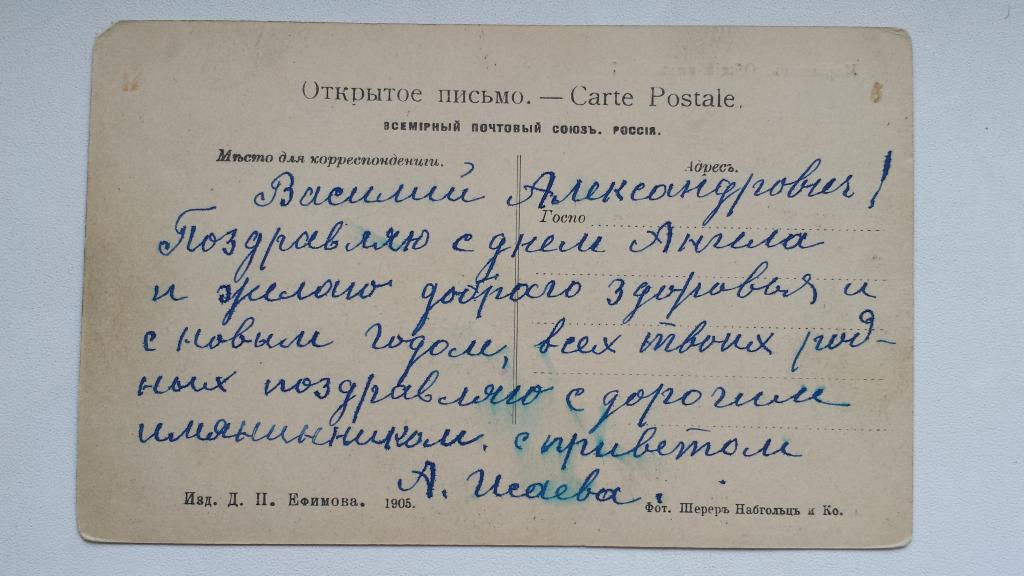 Открытое письмо. — Carte Postale.
ВСЕМІРНЫЙ ПОЧТОВЫЙ СОЮЗЪ. РОССІЯ.
Мѣсто для корреспонденціи.
Адресъ.
Василий Александрович!
Госпо
Поздравляю с днем Ангела
и желаю добраго здоровья и
с новым годом, всех твоих род-
ных поздравляю с дорогим
имянинником. с приветом
А. Исаева.
Изд. Д. П. Ефимова. 1905.
Фот. Шереръ Набгольцъ и Ко.